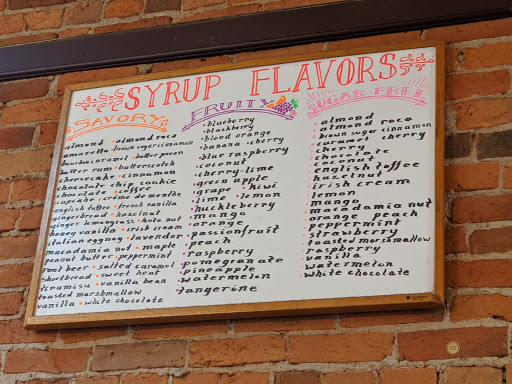 SYRUP FLAVORS
SAVORY
almond • almond roca
amaretto • brown sugar cinnamon
bourbon caramel • butter pecan
butter rum • butterscotch
cheesecake • cinnamon
chocolate chip cookie
chocolate • coffee
cupcake • crème de menthe
english toffee • french vanilla
gingerbread • hazelnut
ginger lemongrass
honey vanilla • irish cream
italian eggnog • lavender
macadamia nut • maple
peanut butter • peppermint
root beer • salted caramel
shortbread • sweet heat
tiramisu • vanilla bean
toasted marshmallow
vanilla • white chocolate
FRUITY
• blueberry
• blackberry
• blood orange
• banana • cherry
• blue raspberry
• coconut
• cherry-lime
• green apple
• grape • kiwi
• lime • lemon
• huckleberry
• mango
• orange
• passionfruit
• peach
• raspberry
• pomegranate
• pineapple
• watermelon
• tangerine
SUGAR FREE
• almond
• almond roca
• brown sugar cinnamon
• caramel • cherry
• cherry
• chocolate
• coconut
• english toffee
• hazelnut
• irish cream
• lemon
• mango
• macadamia nut
• orange • peach
• peppermint
• strawberry
• toasted marshmallow
• raspberry
• vanilla
• watermelon
• white chocolate